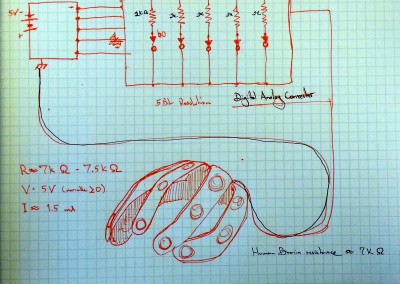 5V
1KΩ
b0
5Bit Resolution
Digital Analog Converter
R≈ 7KΩ - 7.5KΩ
V= 5V
I≈ 1.5 mA
Human Brain resistance ≈ 7KΩ